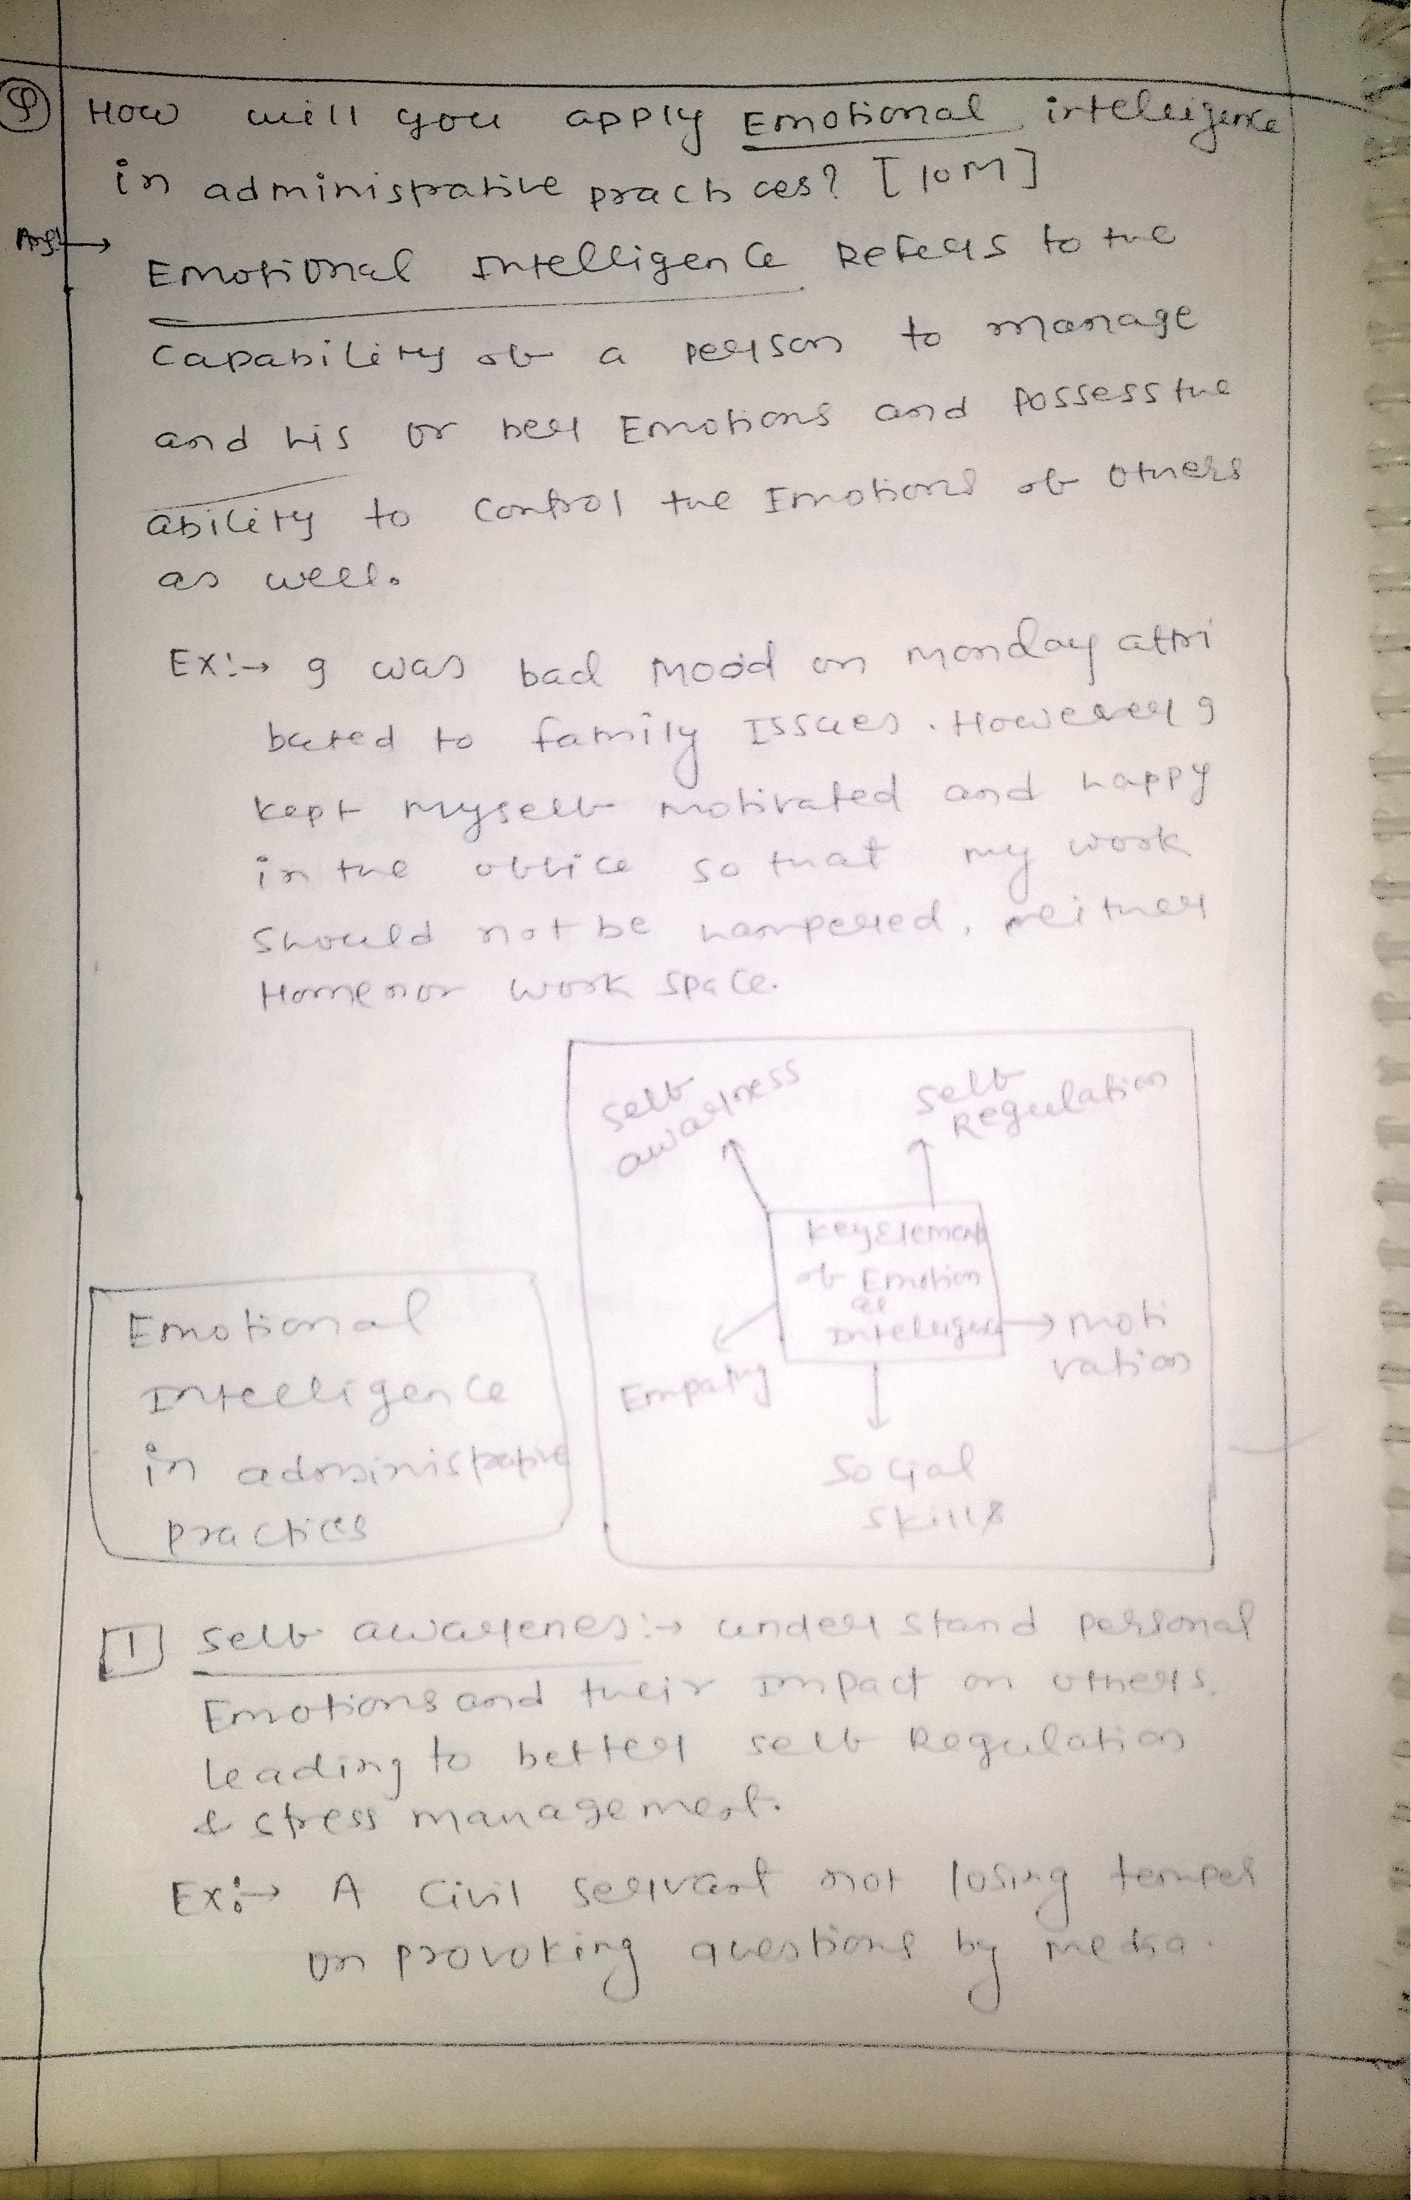 Q How will you apply Emotional intelligence
in administrative practices? [10M]
Ans:→
Emotional Intelligence Refers to the
capability of a person to manage
and his or her Emotions and Possess the
ability to control the Emotions of others
as well.
Ex:→ I was bad Mood on monday attri
buted to family Issues. However I
kept myself motivated and happy
in the office so that my work
should not be hampered, neither
Home nor work space.
self
awareness
self
Regulation
Key Elements
of Emotion
al
Intelligence
moti
vation
Empathy
Social
Skills
Emotional
Intelligence
in administrative
practices
1 Self awarenes:→ understand personal
Emotions and their Impact on others.
leading to better self Regulation
& stress management.
Ex:→ A Civil servant not losing temper
on provoking questions by media.